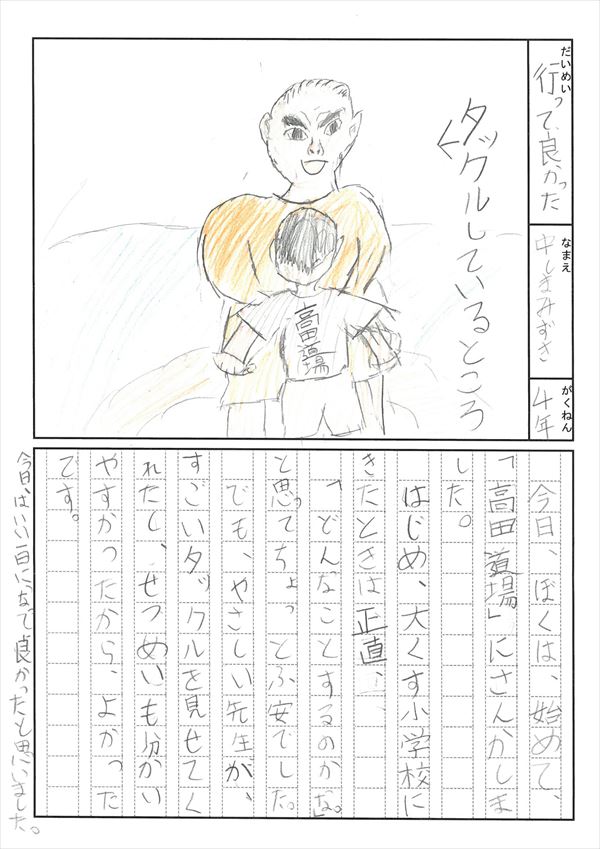 だいめい
行って良かった
なまえ
中しまみずき
がくねん
4年
タックルしているところ
高田道場
今日、ぼくは、始めて、
「高田道場」にさんかしま
した。
はじめ、大くす小学校に
きたときは正直、
「どんなことするのかな。」
と思ってちょっとふ安でした。
でも、やさしい先生が、
すごいタックルを見せてく
れたし、せつめいも分かい
やすかったから、よかった
です。
今日はいい一日になって良かったと思いました。